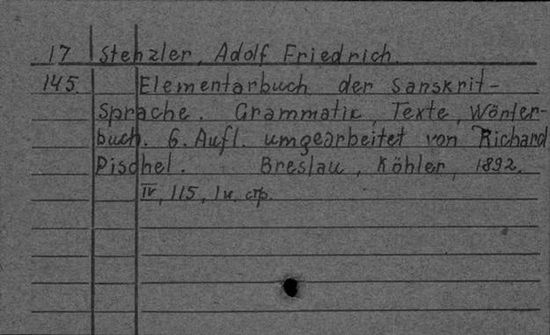 17 Stenzler, Adolf Friedrich.
145. Elementarbuch der Sanskrit-
Sprache. Grammatik, Texte, Wörter-
buch. 6. Aufl. umgearbeitet von Richard
Pischel. Breslau, Köhler, 1892.
IV, 115, 1 н. стр.